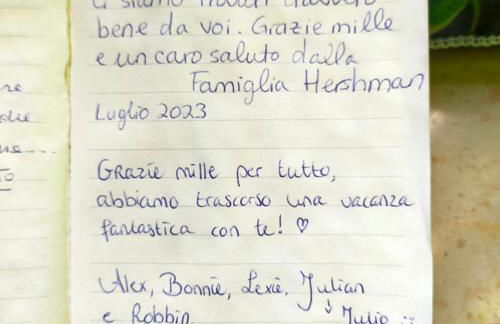 ci siamo trovati davvero
bene da voi. Grazie mille
e un caro saluto dalla
Famiglia Hershman
Luglio 2023
Grazie mille per tutto,
abbiamo trascorso una vacanza
fantastica con te! ♡
Alex, Bonnie, Lexie, Julian
↓
e Robbin Julio :)